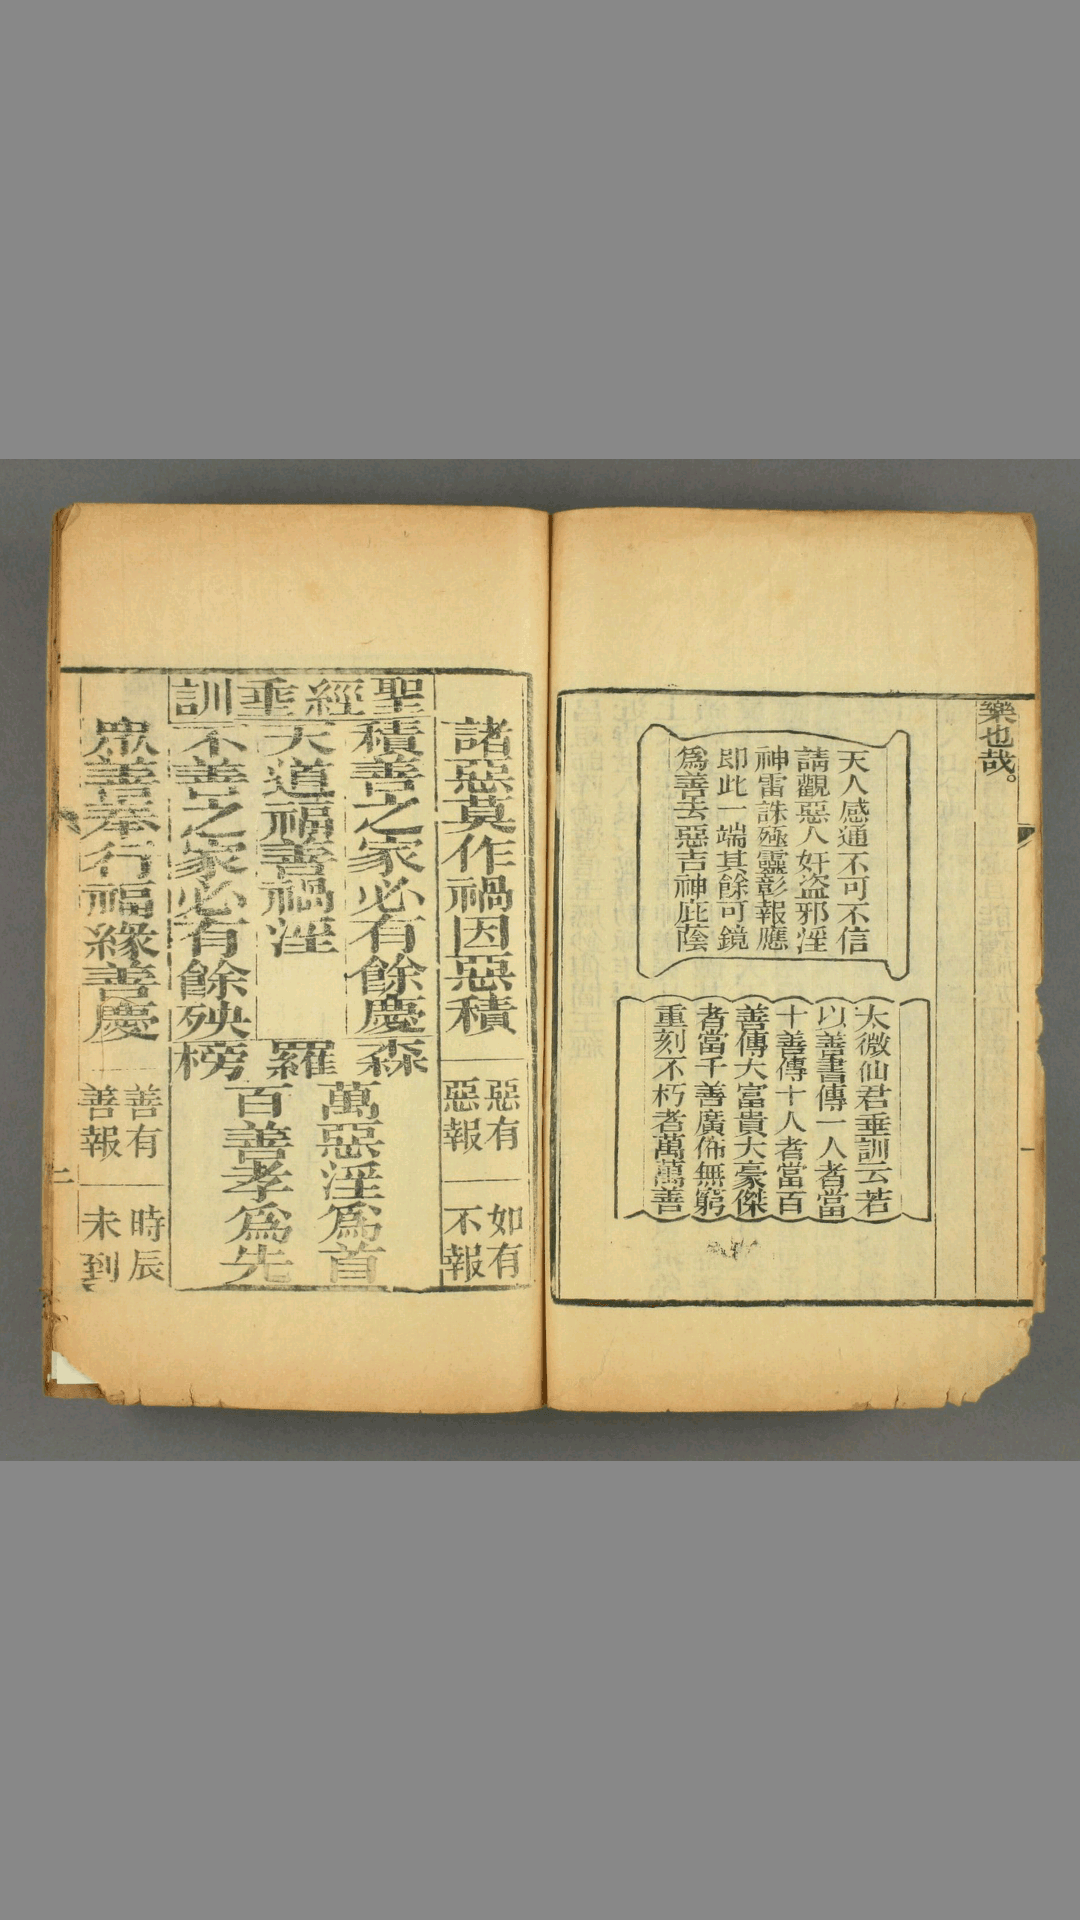 樂也哉。
天人感通不可不信
請觀惡人奸盗邪淫
神雷誅殛靈彰報應
即此一端其餘可鏡
爲善去惡吉神庇蔭
太微仙君垂訓云若
以善書傳一人者當
十善傳十人者當百
善傳大富貴大豪傑
者當千善廣佈無窮
重刻不朽者萬萬善
諸惡莫作禍因惡積
惡有
惡報
如有
不報
聖經垂訓
積善之家必有餘慶
天道福善禍淫
不善之家必有餘殃
森羅榜
萬惡淫爲首
百善孝爲先
眾善奉行福緣善慶
善有
善報
時辰
未到
二